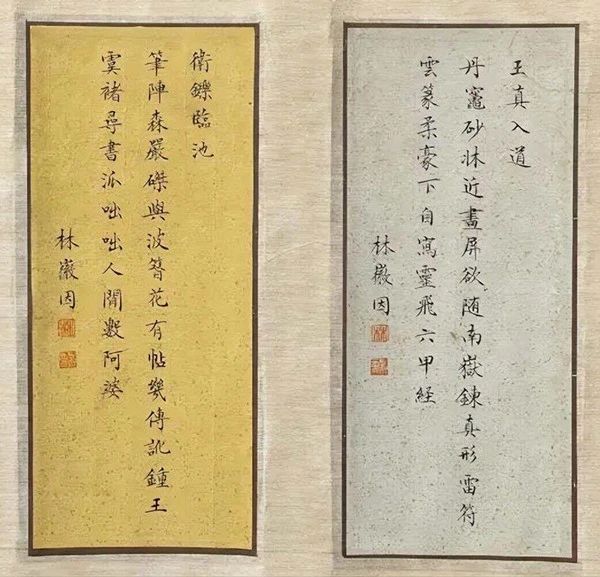 王真入道
丹竈砂牀近畫屏欲随南嶽鍊真形雷符
雲篆柔豪下自寫靈飛六甲経
林徽因
衛鑠臨池
筆陣森嚴磔與波簪花有帖幾傳訛鍾王
虞褚尋書派咄咄人間數阿婆
林徽因